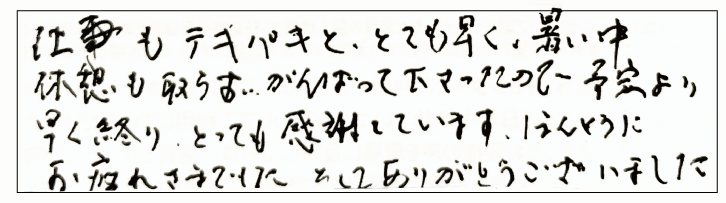 仕事もテキパキと、とても早く、暑い中
休憩も取らず…がんばって下さったので予定より
早く終り、とっても感謝しています。ほんとうに
お疲れさまでした そしてありがとうございました